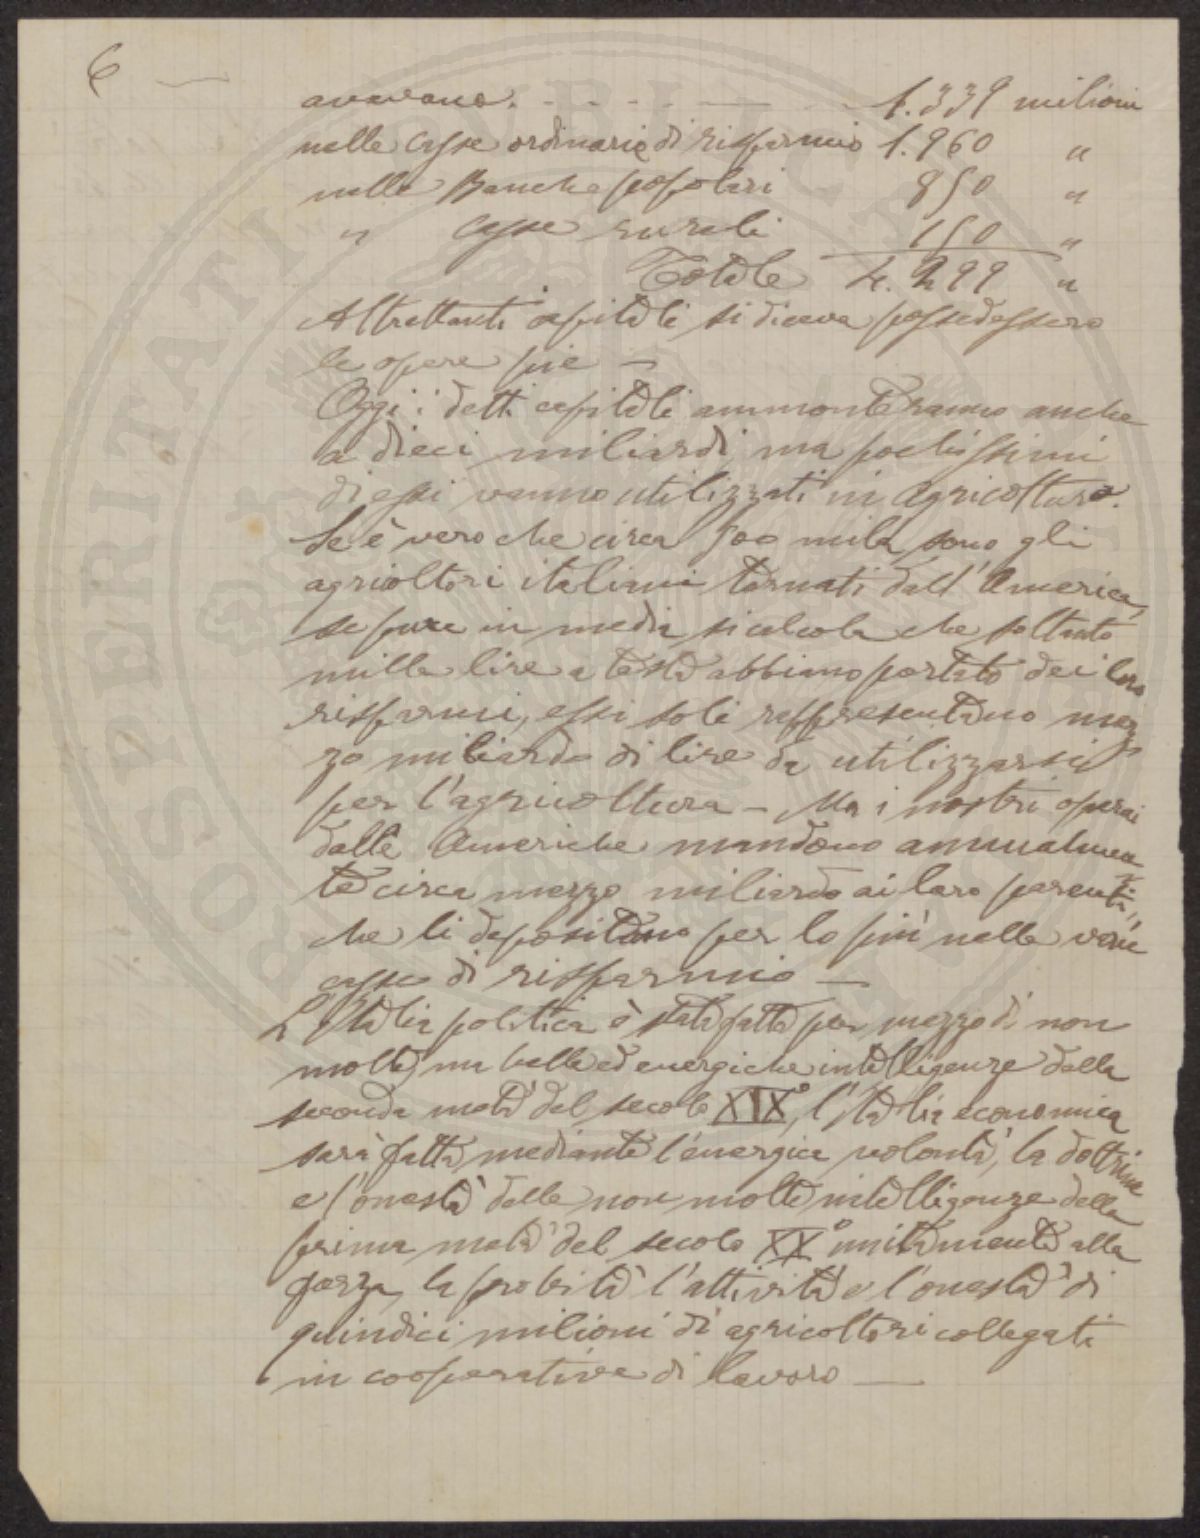 6 —
avevano. - - - - 1.339 milioni
nelle casse ordinarie di risparmio 1.960 "
nelle Banche popolari 850 "
" casse rurali 150 "
Totale 4.299 "
Altrettanti capitali si diceva possedessero
le opere pie —
Oggi i detti capitali ammonteranno anche
a dieci miliardi, ma pochissimi
di essi vanno utilizzati in agricoltura.
Se è vero che circa 500 mila sono gli
agricoltori italiani tornati dall'America,
se pure in media si calcola che soltanto
mille lire a testa abbiano portato dei loro
risparmi, essi soli rappresentano mez
zo miliardo di lire da utilizzarsi
per l'agricoltura — Ma i nostri operai
dalle Americhe mandano annualmen
te circa mezzo miliardo ai loro parenti,
che li depositano per lo più nelle varie
casse di risparmio —
L'Italia politica è stata fatta per mezzo di non
molte, ma belle ed energiche intelligenze della
seconda metà del secolo XIX°, l'Italia economica
sarà fatta, mediante l'energica volontà, la dottrina
e l'onestà delle non molte intelligenze della
prima metà del secolo XX° unitamente alla
forza, la probità l'attività e l'onestà di
quindici milioni di agricoltori collegati
in cooperative di lavoro —
PROSPERITATI PVBLICAE